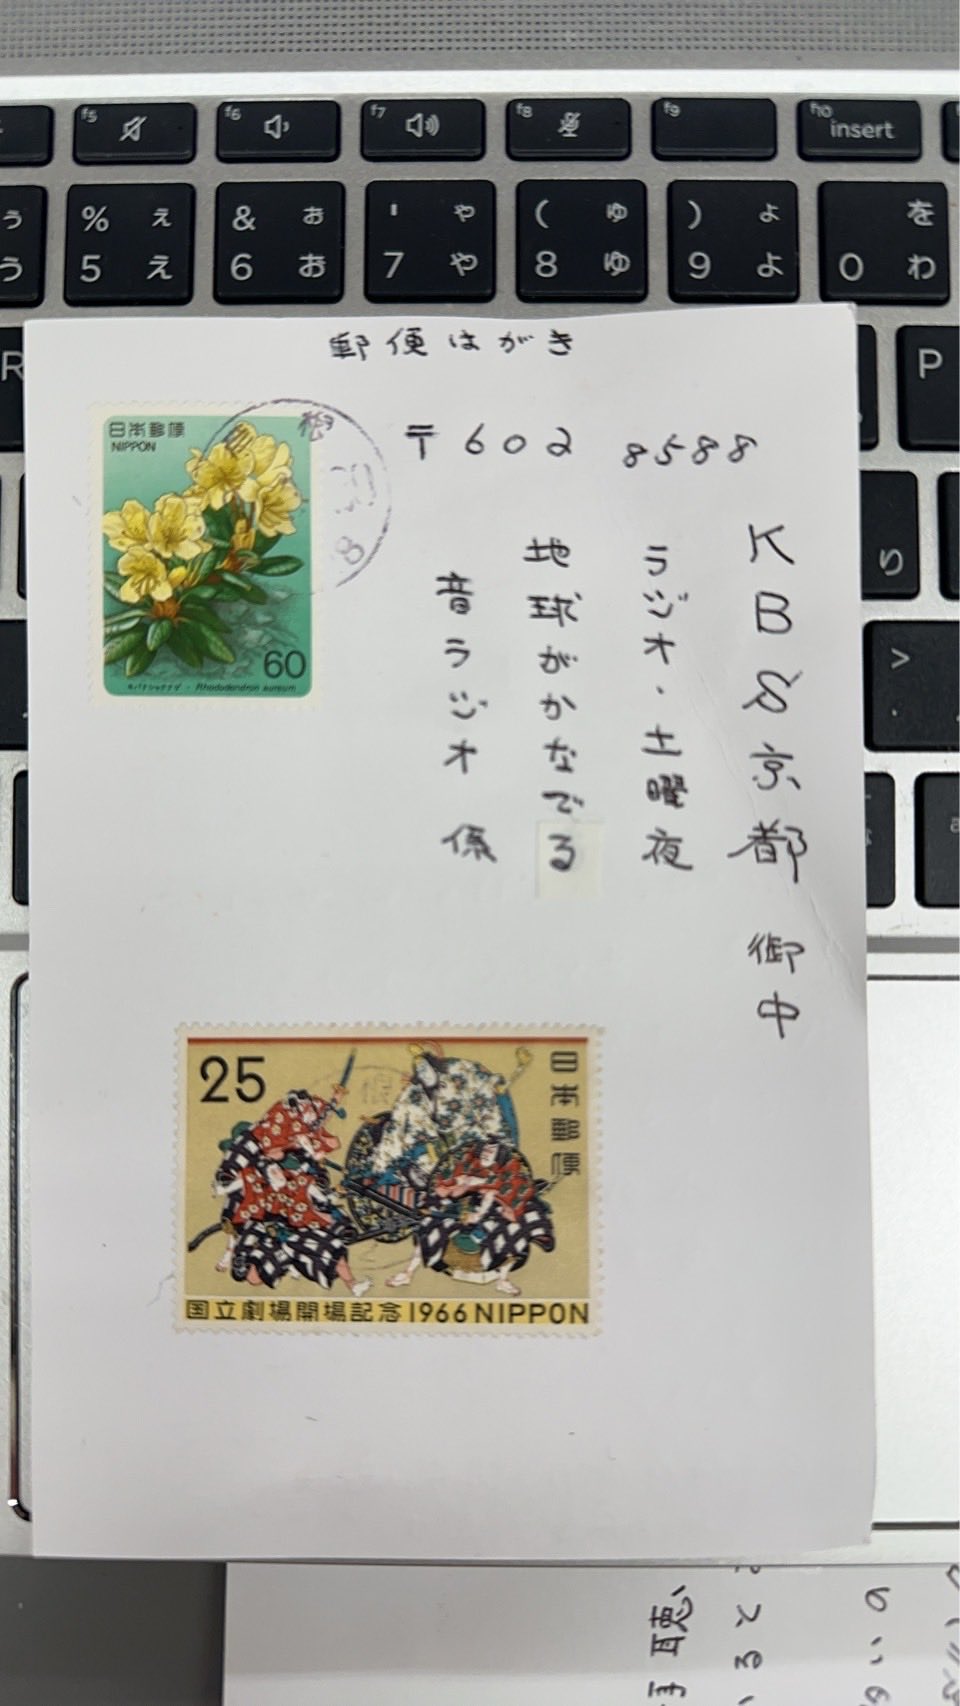 f5
f6
f7
f8
f9
f10
insert
う
% ぇ
& ぉ
' ゃ
( ゅ
) ょ
を
う
5 え
6 お
7 や
8 ゆ
9 よ
0 わ
R
P
り
>
郵便はがき
〒602 8588
KBS京都 御中
ラジオ・土曜夜
地球がかなでる
音ラジオ 係
日本郵便
NIPPON
60
キバナシャクナゲ・Rhododendron aureum
25
日本郵便
国立劇場開場記念 1966 NIPPON